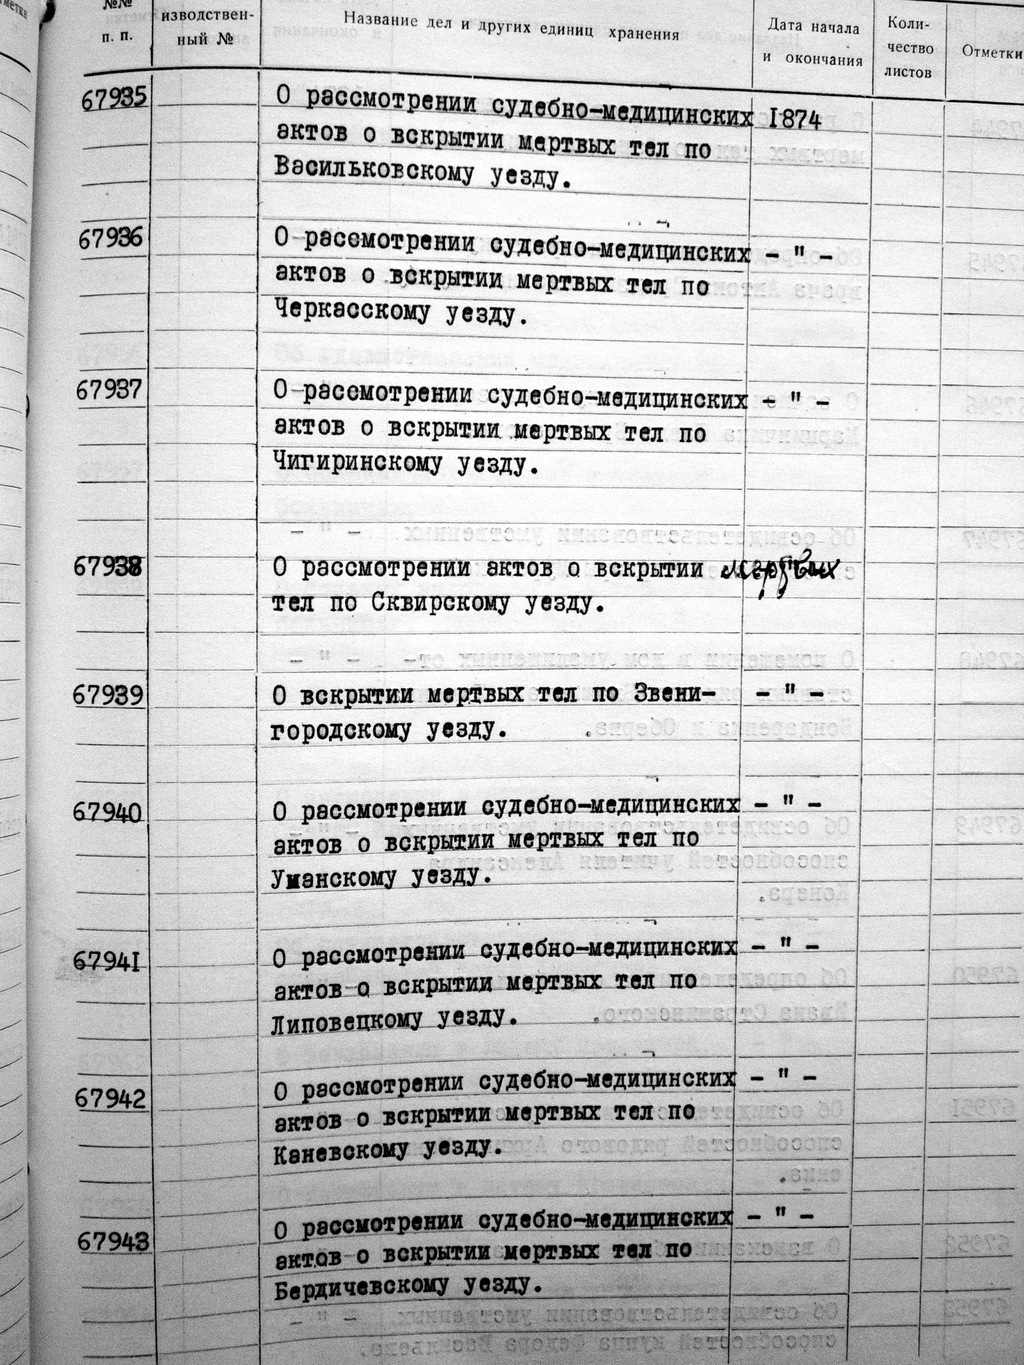 №№ изводствен- Название дел и других единиц хранения Дата начала Коли-
п. п. ный № и окончания чество Отметки
листов
67935 О рассмотрении судебно-медицинских 1874
актов о вскрытии мертвых тел по
Васильковскому уезду.
67936 О рассмотрении судебно-медицинских - " -
актов о вскрытии мертвых тел по
Черкасскому уезду.
67937 О рассмотрении судебно-медицинских - " -
актов о вскрытии мертвых тел по
Чигиринскому уезду.
67938 О рассмотрении актов о вскрытии мертвых
тел по Сквирскому уезду.
67939 О вскрытии мертвых тел по Звени- - " -
городскому уезду.
67940 О рассмотрении судебно-медицинских - " -
актов о вскрытии мертвых тел по
Уманскому уезду.
67941 О рассмотрении судебно-медицинских - " -
актов о вскрытии мертвых тел по
Липовецкому уезду.
67942 О рассмотрении судебно-медицинских - " -
актов о вскрытии мертвых тел по
Каневскому уезду.
67943 О рассмотрении судебно-медицинских - " -
актов о вскрытии мертвых тел по
Бердичевскому уезду.